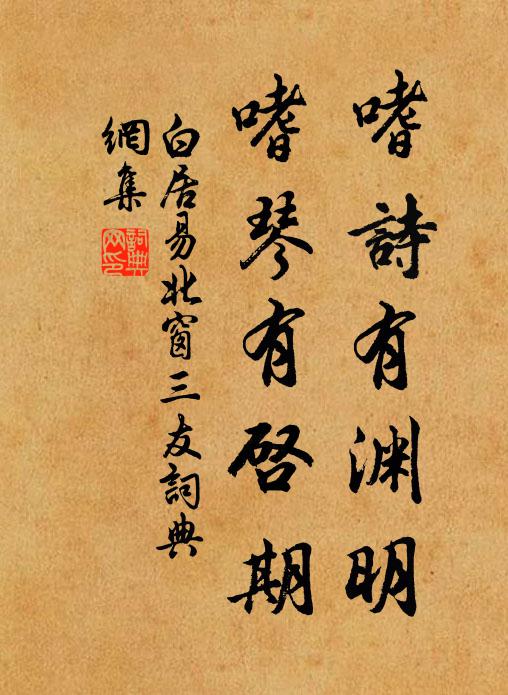 嗜詩有渊明
嗜琴有啓期
白居易北窗三友詞典
網集
詞典
网印